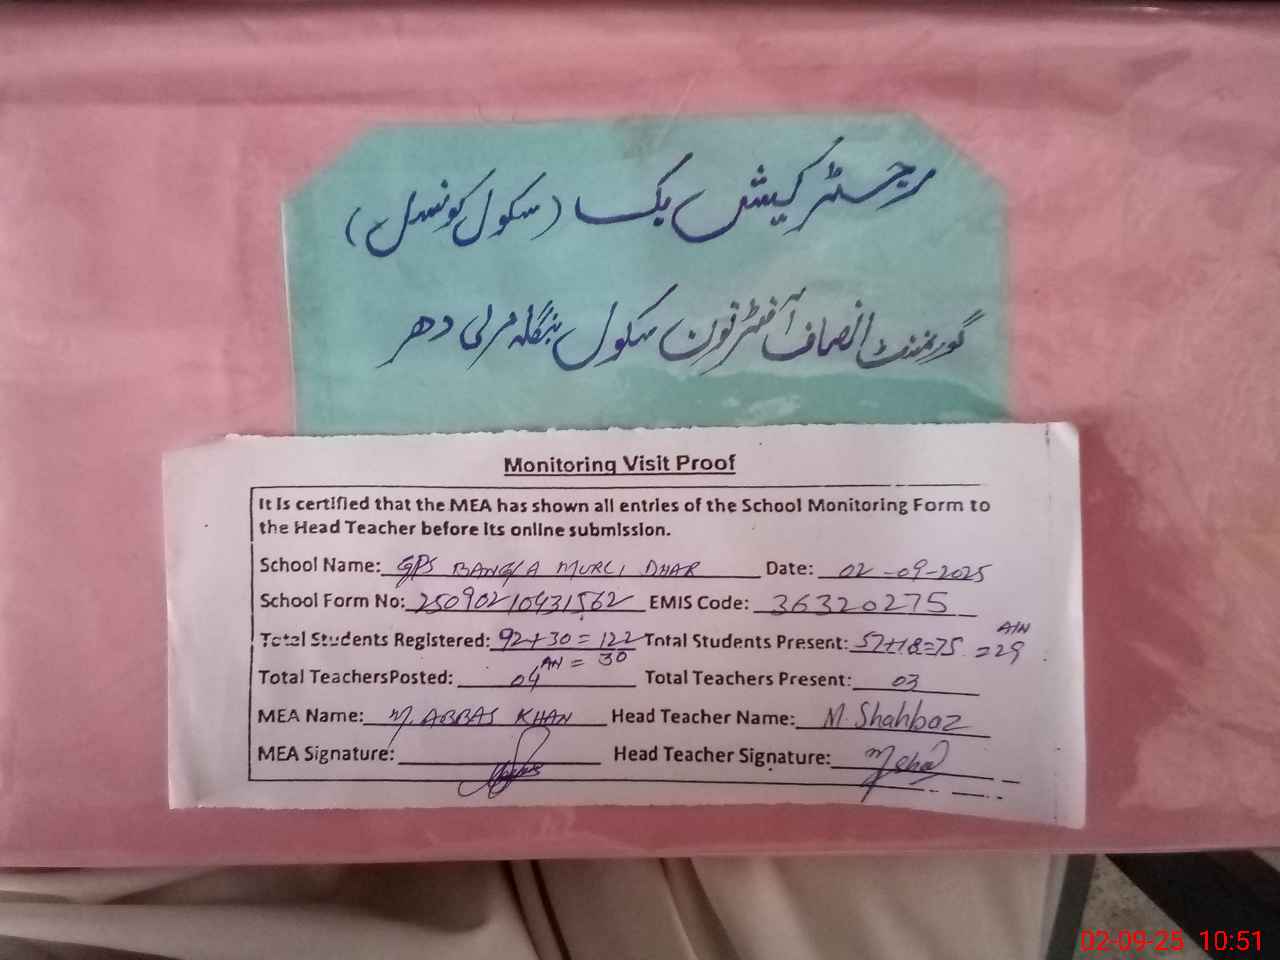 رجسٹر کیش بک (سکول کونسل)
گورنمنٹ انصاف آفٹرنون سکول بنگلہ مرلی دھر
Monitoring Visit Proof
It is certified that the MEA has shown all entries of the School Monitoring Form to
the Head Teacher before its online submission.
School Name: GPS BANGLA MURLI DHAR Date: 02-09-2025
School Form No: 25090210431562 EMIS Code: 36320275
Total Students Registered: 92+30=122 Total Students Present: 57+18=75 A/N =29
Total TeachersPosted: 04 AN = 30 Total Teachers Present: 03
MEA Name: M. ABBAS KHAN Head Teacher Name: M. Shahbaz
MEA Signature: Head Teacher Signature:
02-09-25 10:51